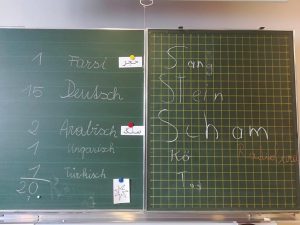 1 Farsi
15 Deutsch
2 Arabisch
1 Ungarisch
1 Türkisch
20
Sang
STein
Scham
Kö